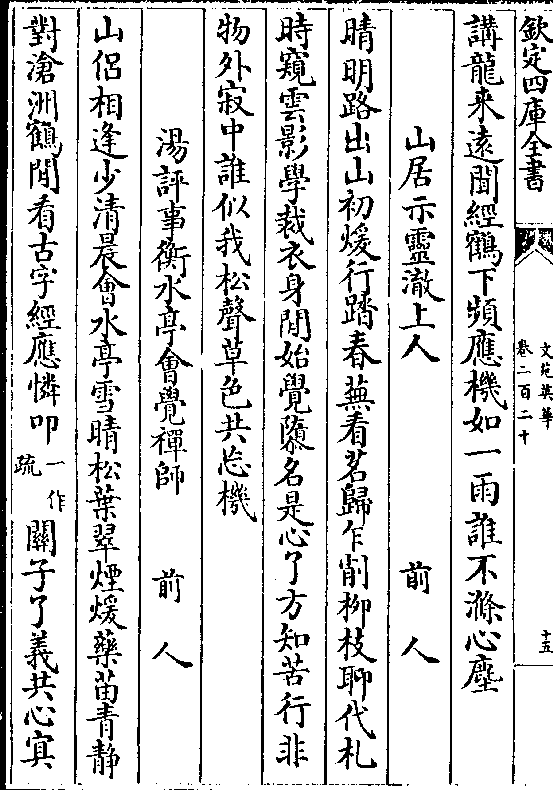 欽定四庫全書
文苑英華
卷二百二十
十五
講龍来遠聞經鶴下頻應機如一雨誰不滌心塵
山居示靈澈上人
前人
晴明路出山初煖行踏春蕪看茗歸乍削柳枝聊代札
時窺雲影學裁衣身閒始覺隳名是心了方知苦行非
物外寂中誰似我松聲草色共忘機
湯評事衡水亭會覺禪師
前人
山侶相逢少清晨會水亭雪晴松葉翠煙煖藥苗青静
對滄洲鶴閒看古字經應憐叩一作疏關子了義共心㝠